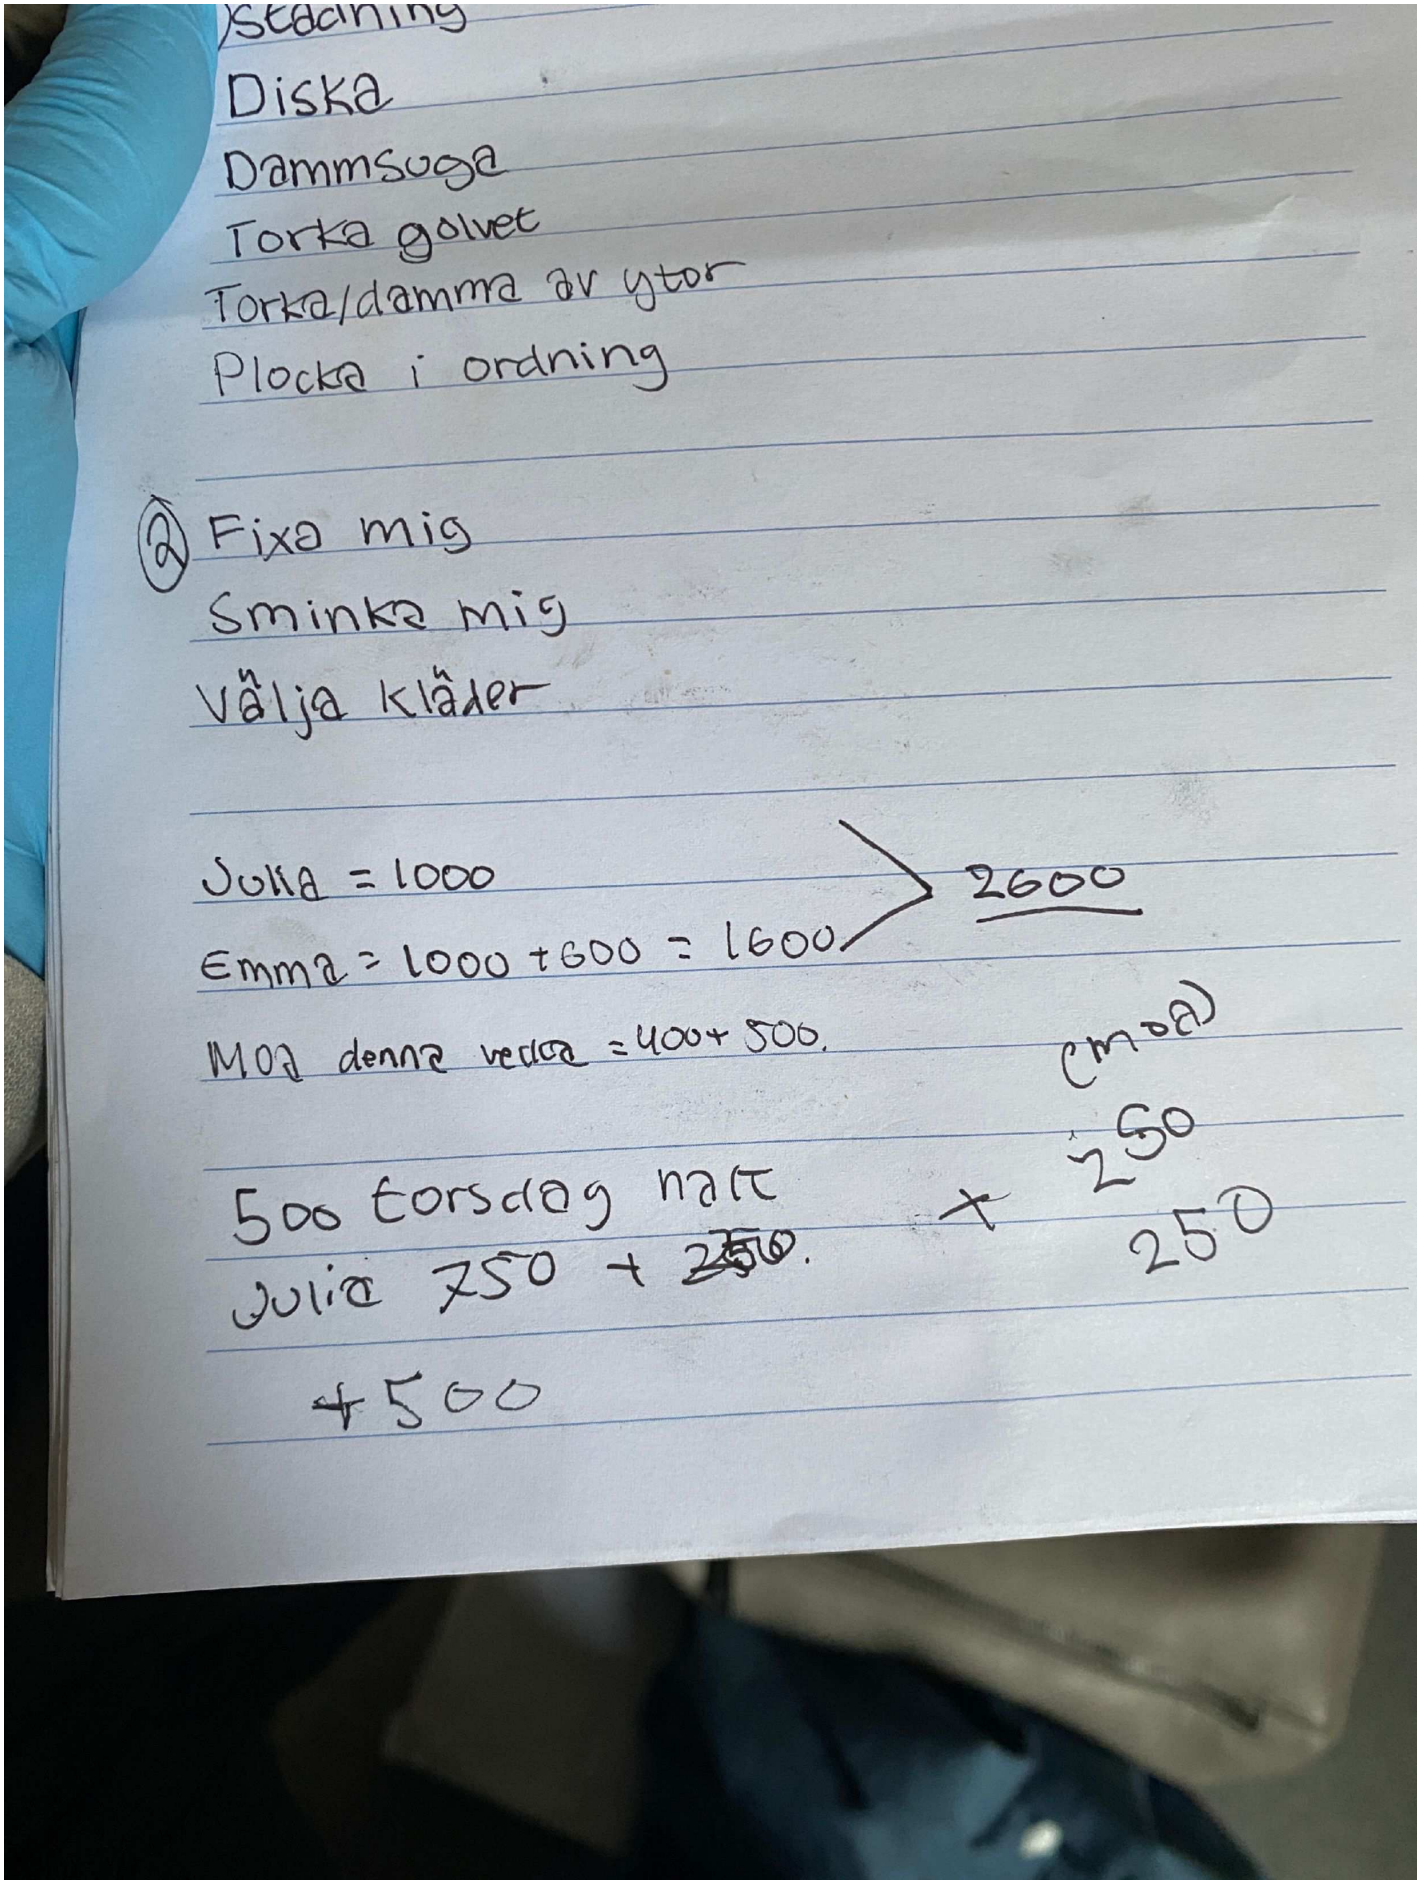 Städning
Diska
Dammsuga
Torka golvet
Torka/damma av ytor
Plocka i ordning
② Fixa mig
Sminka mig
Välja kläder
Julia = 1000
Emma = 1000 + 600 = 1600
2600
Moa denna vecka = 400 + 500.
(moa)
500 torsdag natt
+ 250
Julia 750 + 250.
250
+ 500